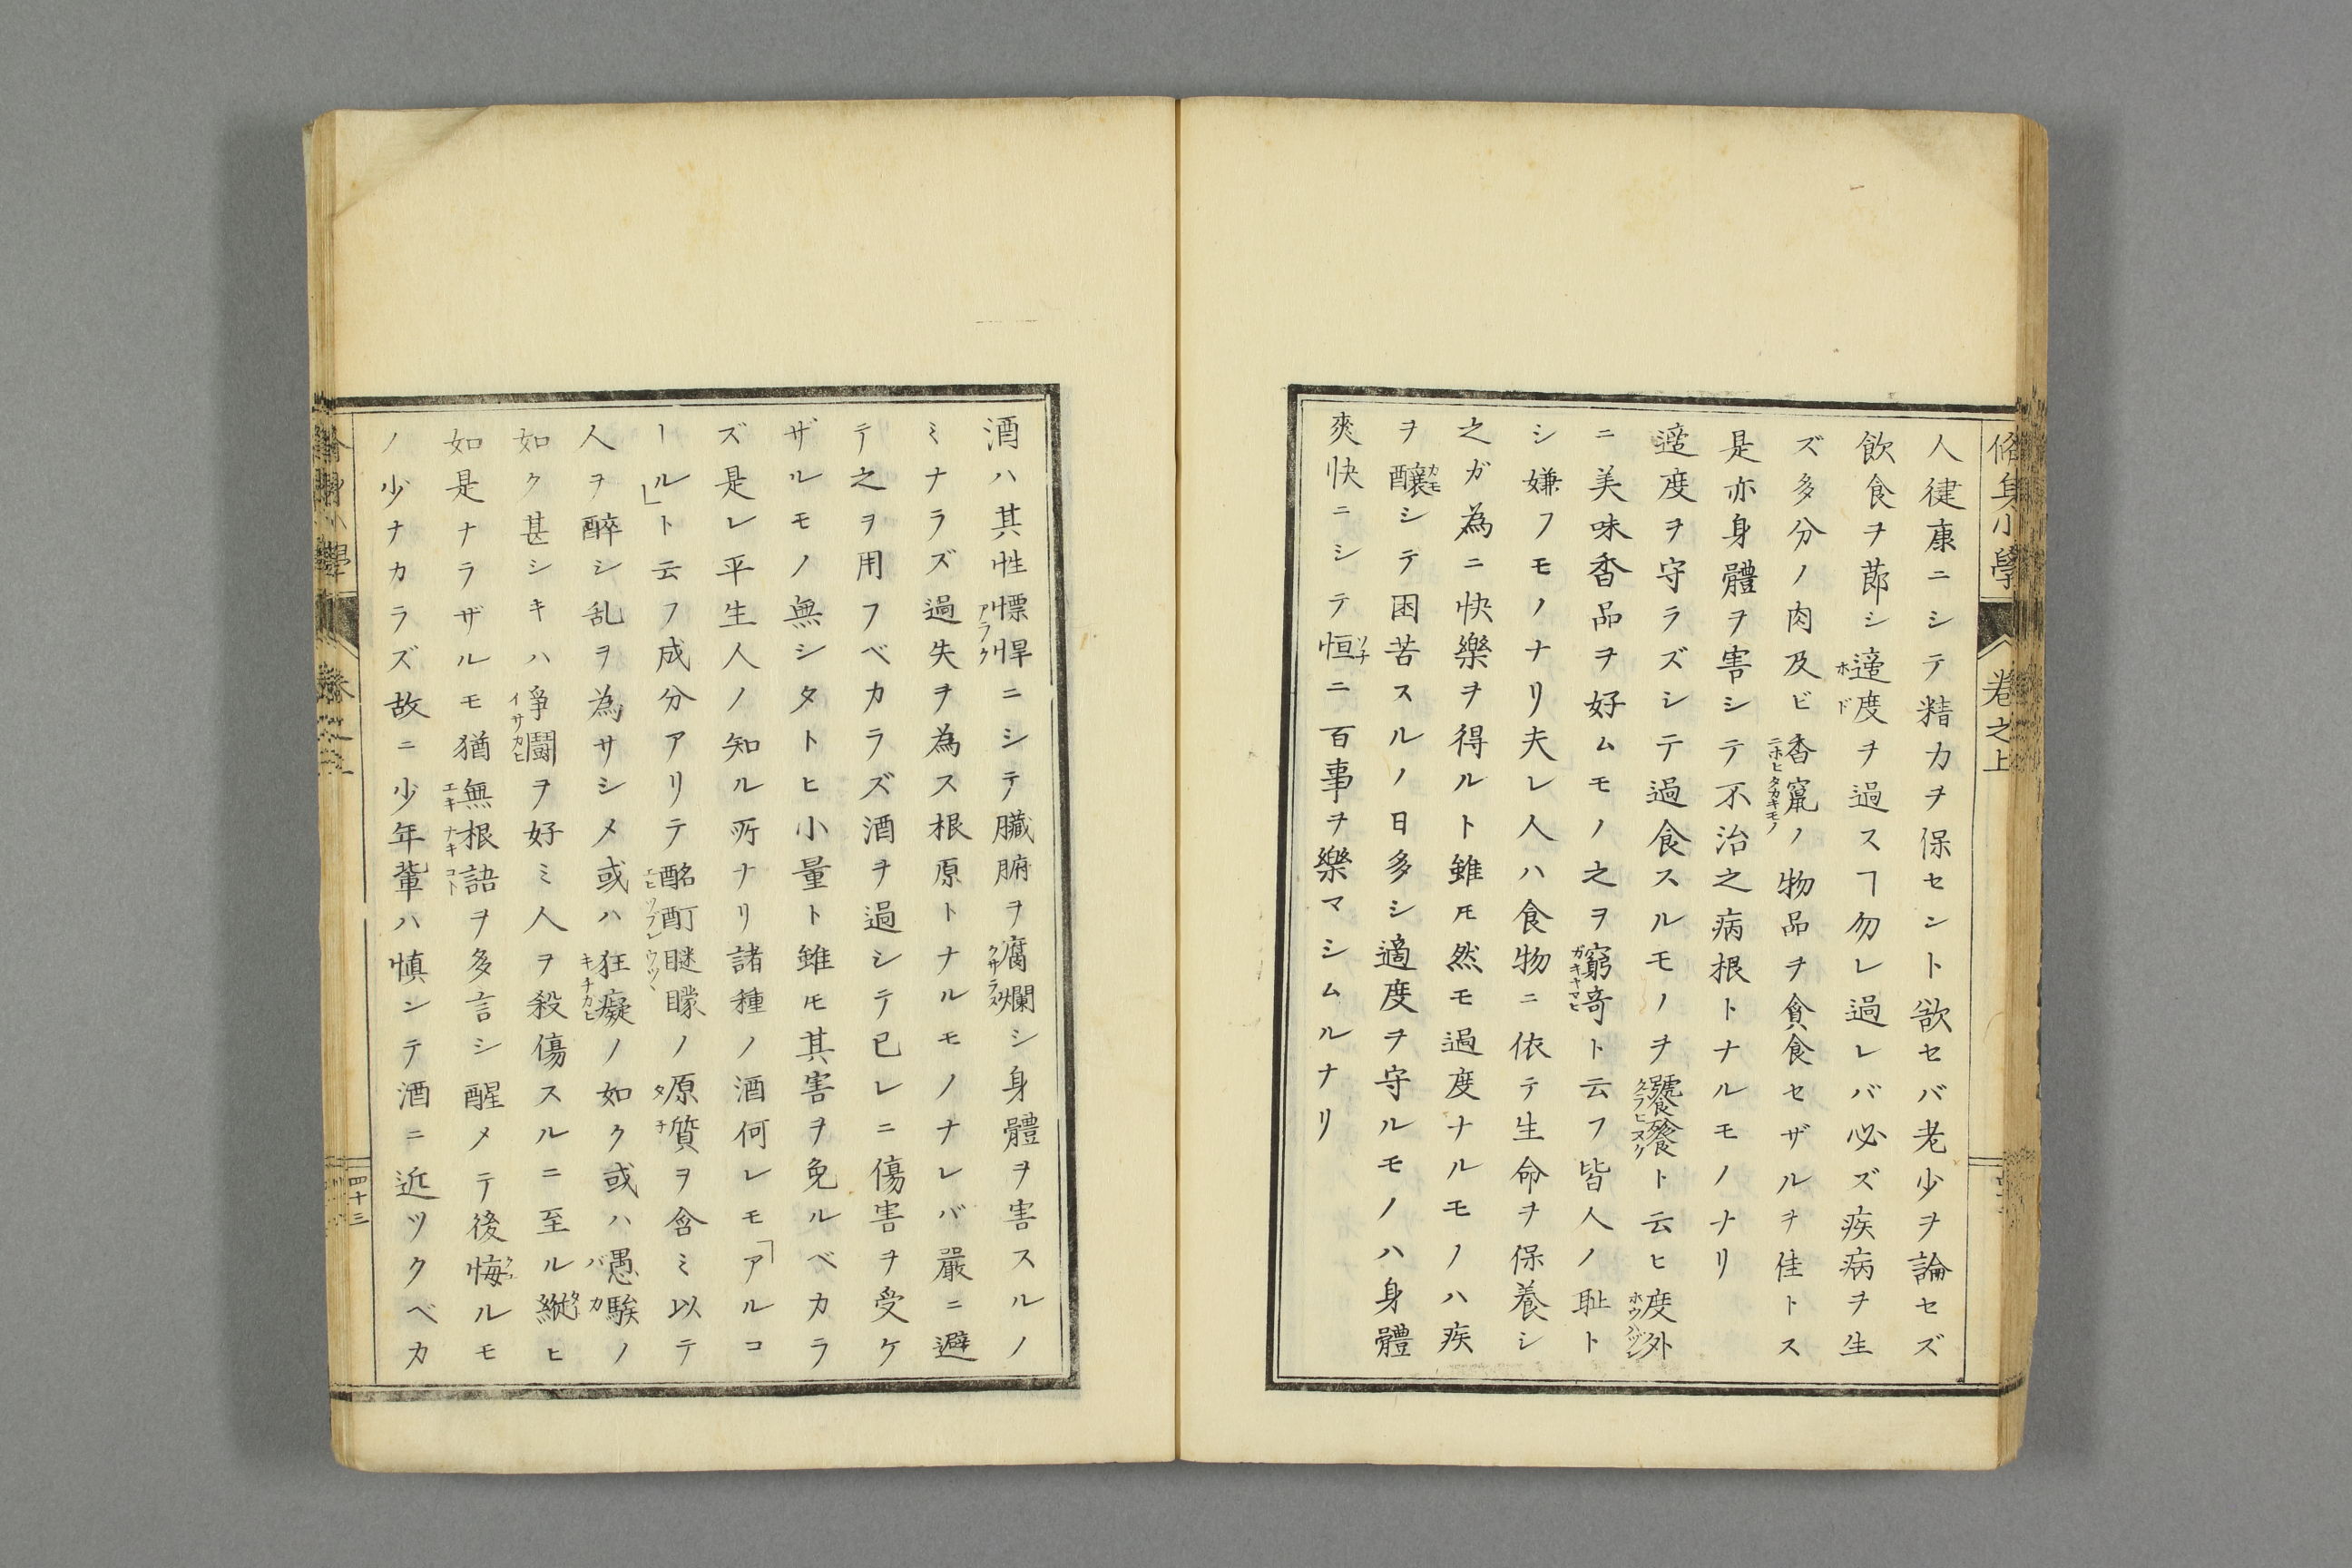 脩身小學
卷之上
人徤康ニシテ精力ヲ保セシト欲セバ老少ヲ論セズ
飲食ヲ莭シ適度ヲ過スヿ勿レ過レバ必ズ疾病ヲ生
ホド
ズ多分ノ肉及ビ香竄ノ物品ヲ貪食セザルヲ佳トス
ニホヒタカキモノ
是亦身體ヲ害シテ不治之病根トナルモノナリ
適度ヲ守ラズシテ過食スルモノヲ饕餮ト云ヒ度外
クラヒヌク
ホウハヅレ
ニ美味香品ヲ好ムモノ之ヲ窮竒ト云フ皆人ノ耻ト
ガキヤマヒ
シ嫌フモノナリ夫レ人ハ食物ニ依テ生命ヲ保養シ
之ガ為ニ快樂ヲ得ルト雖𪜈然モ過度ナルモノハ疾
ヲ釀シテ困苦スルノ日多シ適度ヲ守ルモノハ身體
カモ
爽快ニシテ恒ニ百事ヲ樂マシムルナリ
ツ子
酒ハ其性慓悍ニシテ臓腑ヲ腐爛シ身體ヲ害スルノ
アラク
クサラス
ミナラズ過失ヲ為ス根原トナルモノナレバ嚴ニ避
テ之ヲ用フベカラズ酒ヲ過シテ已レニ傷害ヲ受ケ
ザルモノ無シタトヒ小量ト雖𪜈其害ヲ免ルベカラ
ズ是レ平生人ノ知ル所ナリ諸種ノ酒何レモ「アルコ
ール」ト云フ成分アリテ酩酊瞇矇ノ原質ヲ含ミ以テ
タチ
人ヲ醉シ乱ヲ為サシメ或ハ狂癡ノ如ク或ハ愚騃ノ
キチカヒ
バカ
如ク甚シキハ爭鬪ヲ好ミ人ヲ殺傷スルニ至ル縦ヒ
イサカヒ
タト
如是ナラザルモ猶無根語ヲ多言シ醒メテ後悔ルモ
エキナキコト
ノ少ナカラズ故ニ少年軰ハ慎ンテ酒ニ近ツクベカ
四十三